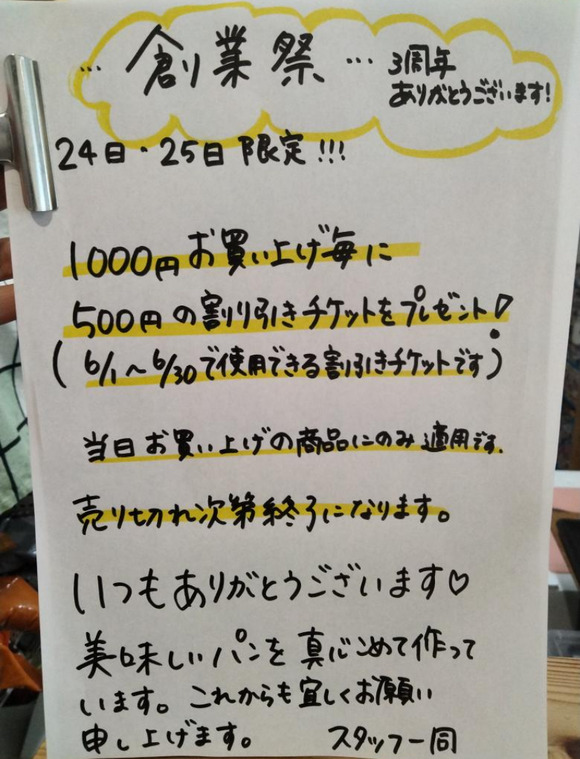 … 創業祭 … 3周年
ありがとうございます!
24日・25日 限定!!!
1000円お買い上げ毎に
500円の割り引きチケットをプレゼント!
(6/1～6/30で使用できる割引きチケットです)
当日お買い上げの商品にのみ適用です.
売り切れ次第終了になります。
いつもありがとうございます♡
美味しいパンを真心こめて作って
います。これからも宜しくお願い
申し上げます。 スタッフ一同